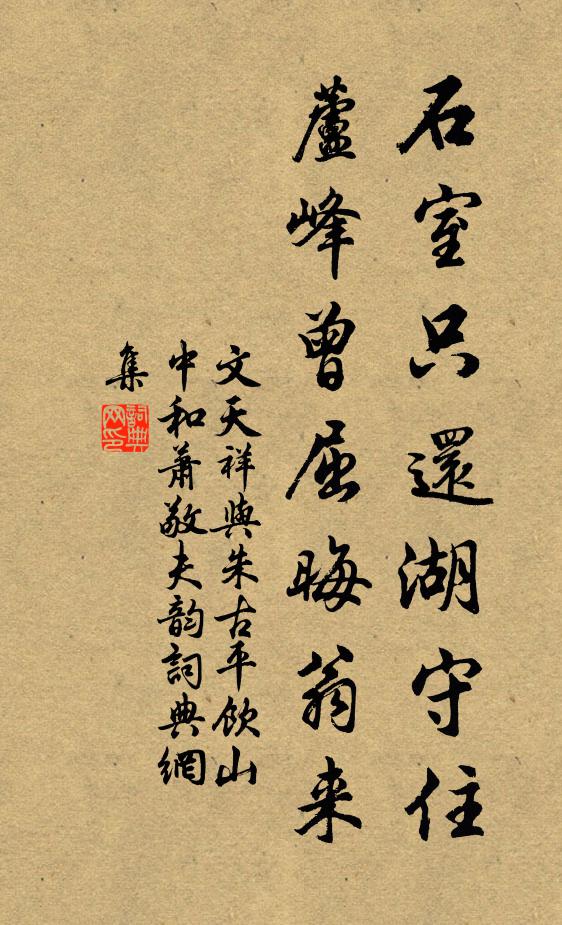 石室只還湖守住
蘆峰曾屈晦翁来
文天祥與朱古平飲山
中和蕭敬夫韵詞典網
集
詞典网印